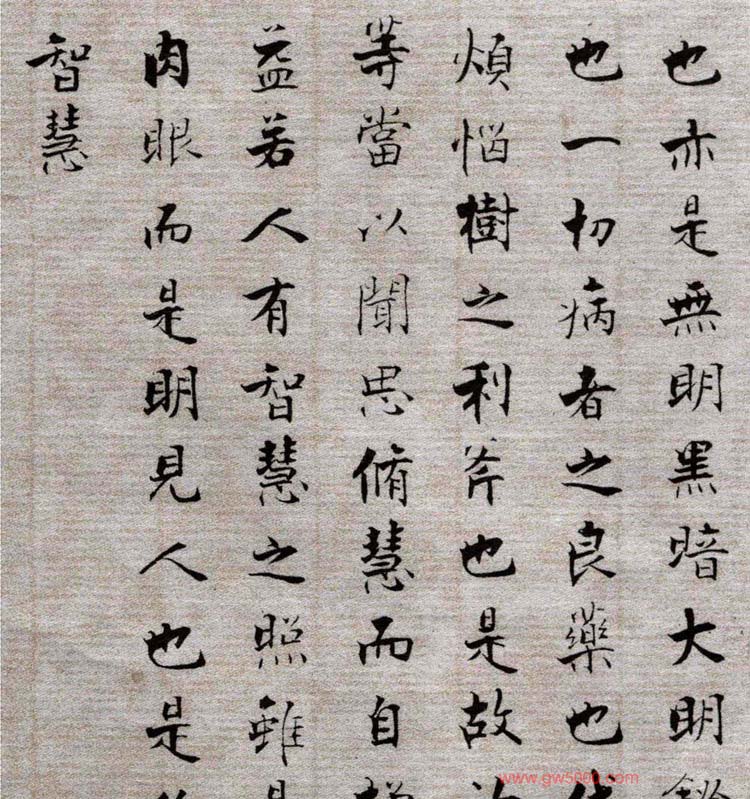 也亦是無明黑暗大明
也一切病者之良藥也
煩惱樹之利斧也是故
等當以聞思脩慧而自
益若人有智慧之照雖
肉眼而是明見人也是
智慧
www.gw5000.com